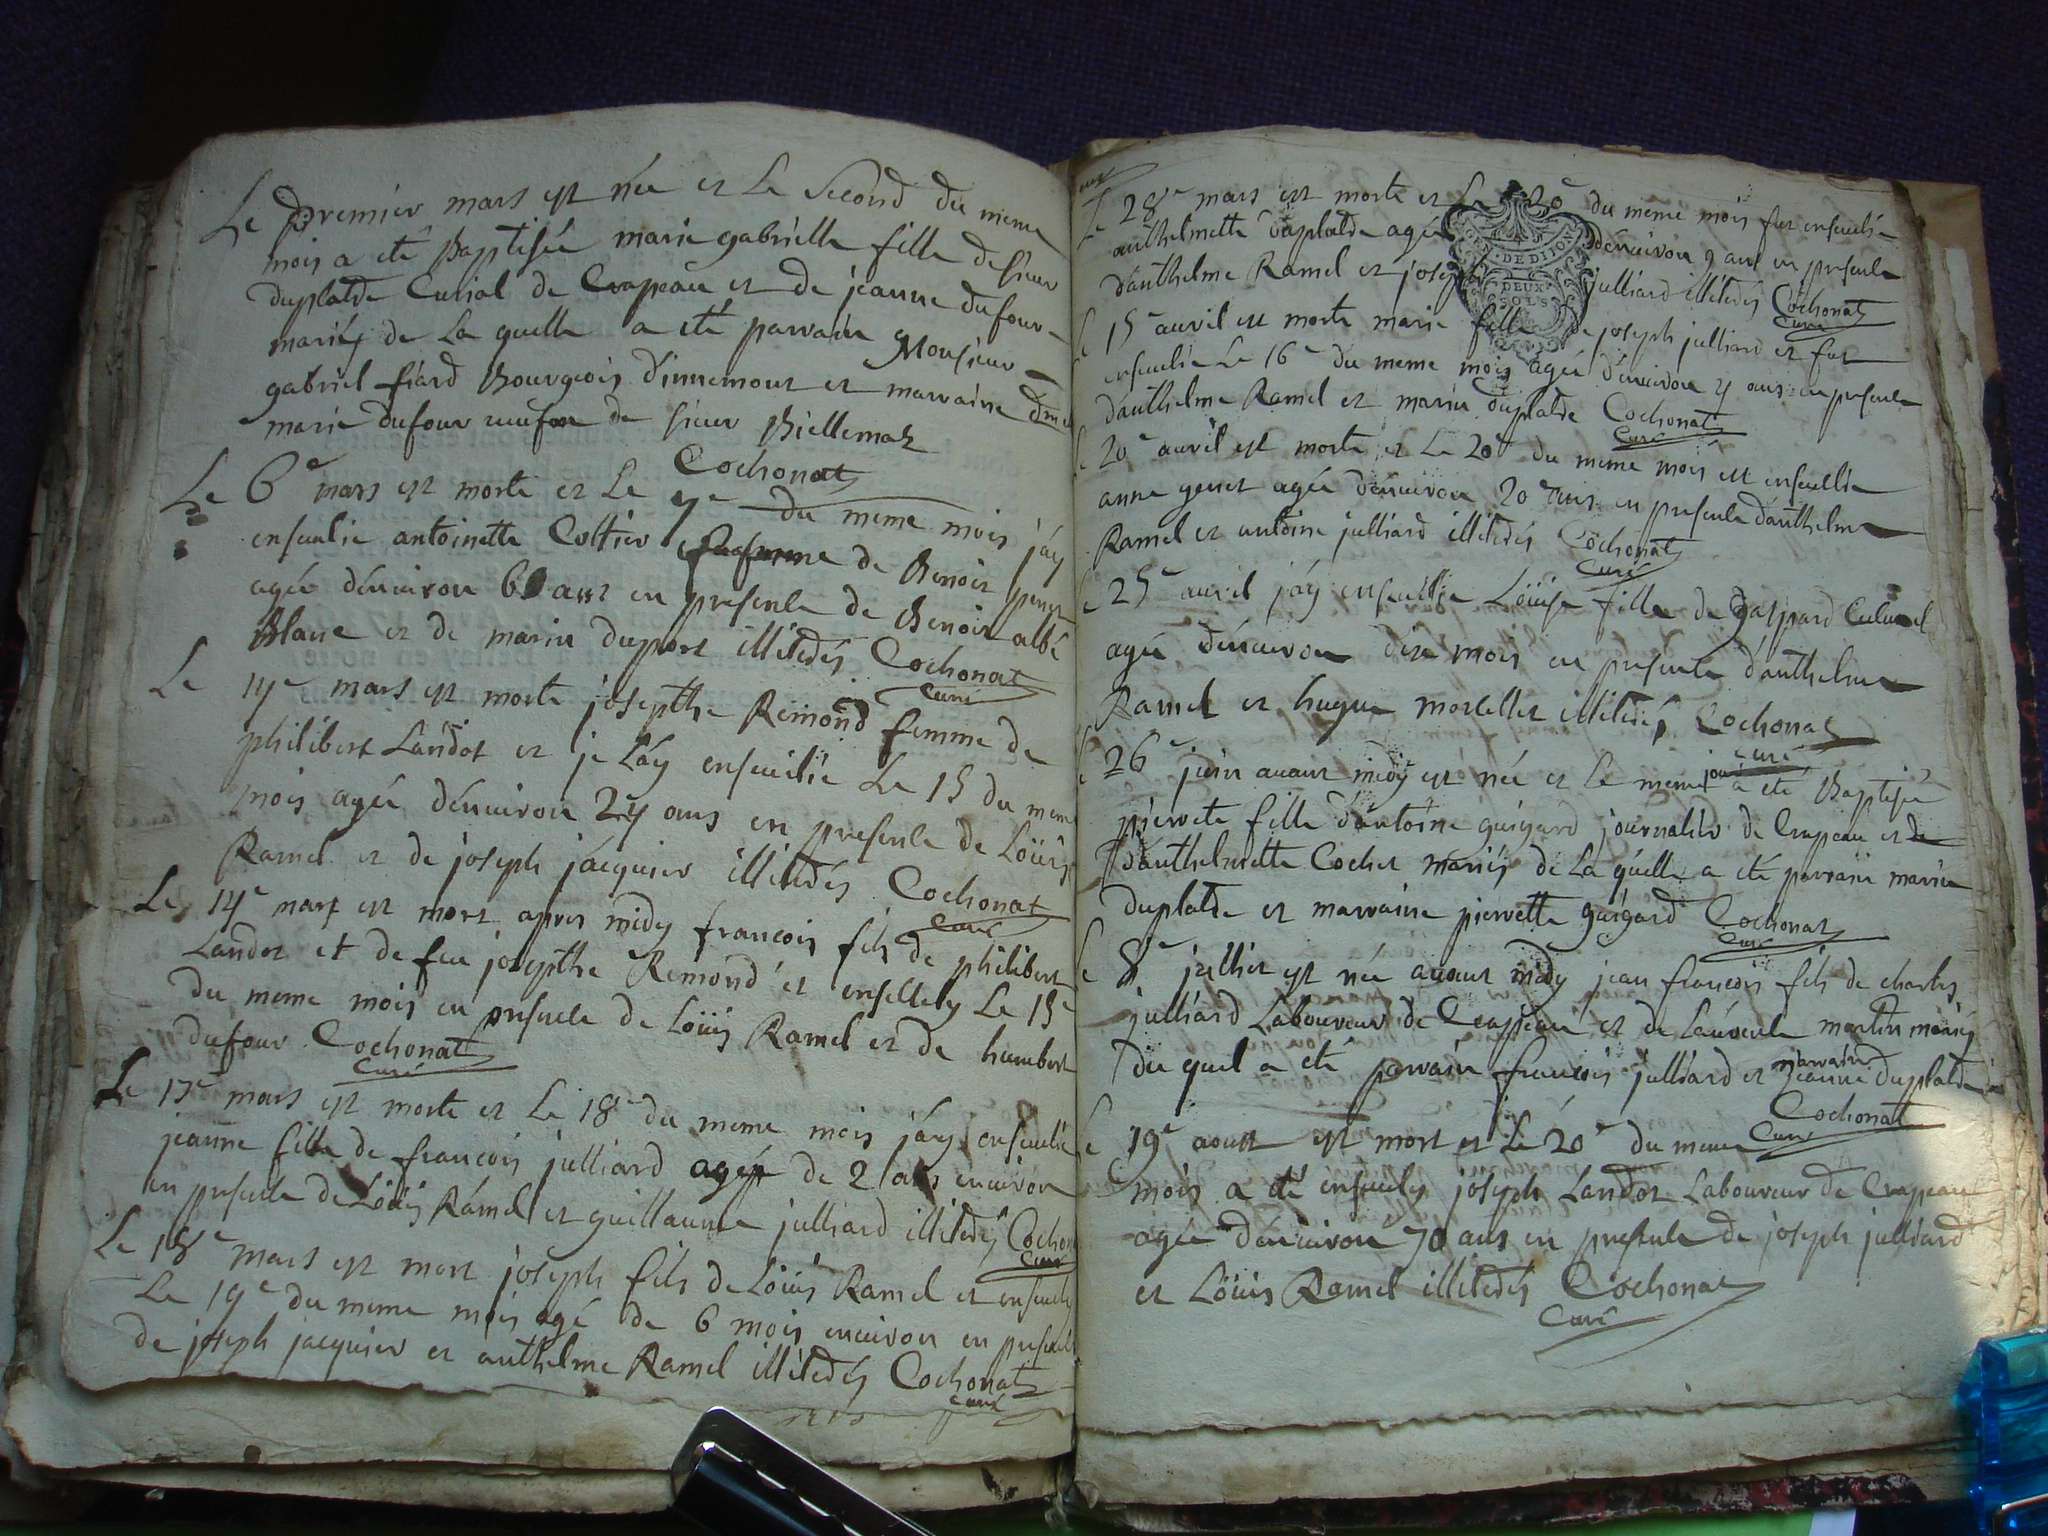 Le premier mars est née et le second du meme
mois a eté Baptisée marie gabrielle fille de sieur
duplatre Curial de Crapeau et de jeanne dufour
mariés de la quelle a eté parrain Monsieur
gabriel fiard Bourgeois d'innemont et marraine dme
marie dufour de sieur Billemaz
Cochonat
Le 6e mars est morte et Le 7e du meme mois j'ay
enseulie antoinette Coltier femme de Benoit
agée d'enuiron 60 ans en presence de Benoit albé
Blanc et de marin duport illiterés Cochonat
Curé
Le 14e mars est morte josepthe Remond femme de
philibert Landot et je L'ay enseuilié Le 15 du meme
mois agée d'enuiron 27 ans en presence de Loüis
Ramel et de joseph jacquier illiterés Cochonat
Curé
Le 14e mars est mort apres midy francois fils de philibert
Landot et de feu josepthe Remond et Le 15e
du meme mois en presence de Loüis Ramel et de humbert
dufour Cochonat
Curé
Le 17e mars est morte et Le 18e du meme mois j'ay enseulié
jeanne fille de francois julliard agée de 2 ans enuiron
en presence de Loüis Ramel et guillaume julliard illiterés Cochon
Curé
Le 18e mars est mort joseph fils de Loüis Ramel et
Le 19e du meme mois agé de 6 mois enuiron en presence
de joseph jacquier et anthelme Ramel illiterés Cochonat
Curé
Le 28e mars est morte et Le du meme mois fut enseulie
anthelmette duplatre agée d'enuiron 9 ans en presence
d'anthelme Ramel et joseph julliard illiterés Cochonat
Curé
GEN. DE DIJON
DEUX
SOLS
15e auril est morte marie fille de joseph julliard et fut
enseulie Le 16e du meme mois agée d'enuiron ans en presence
d'anthelme Ramel et marin duplatre Cochonat
Curé
20e auril est morte et Le 20e du meme mois est enseuellie
anne genet agée d'enuiron 20 ans en presence d'anthelme
Ramel et antoine julliard illiterés Cochonat
Curé
Le 25e auril j'ay enseuellie Loüise fille de gaspard
agée d'enuiron dix mois en presence d'anthelme
Ramel et hugue morellet illiterés Cochonat
Curé
Le 26e juin auant midy est née et le meme jour a eté Baptisée
pierrete fille d'antoine guigard journalier de Crapeau et de
d'anthelmette Cochet mariés de La quelle a eté parrain marin
duplatre et marraine pierrette guigard Cochonat
Curé
Le 8e jullet est née auant midy jean francois fils de charles
julliard Laboureur de Crapeau et de Laurence martin mariés
du quel a eté parrain francois julliard et marraine jeanne duplatre
Cochonat
Curé
Le 19e aoust est mort et Le 20e du meme
mois a eté enseuely joseph Landot Laboureur de Crapeau
agée d'enuiron 70 ans en presence de joseph julliard
et Loüis Ramel illiterés Cochonat
Curé